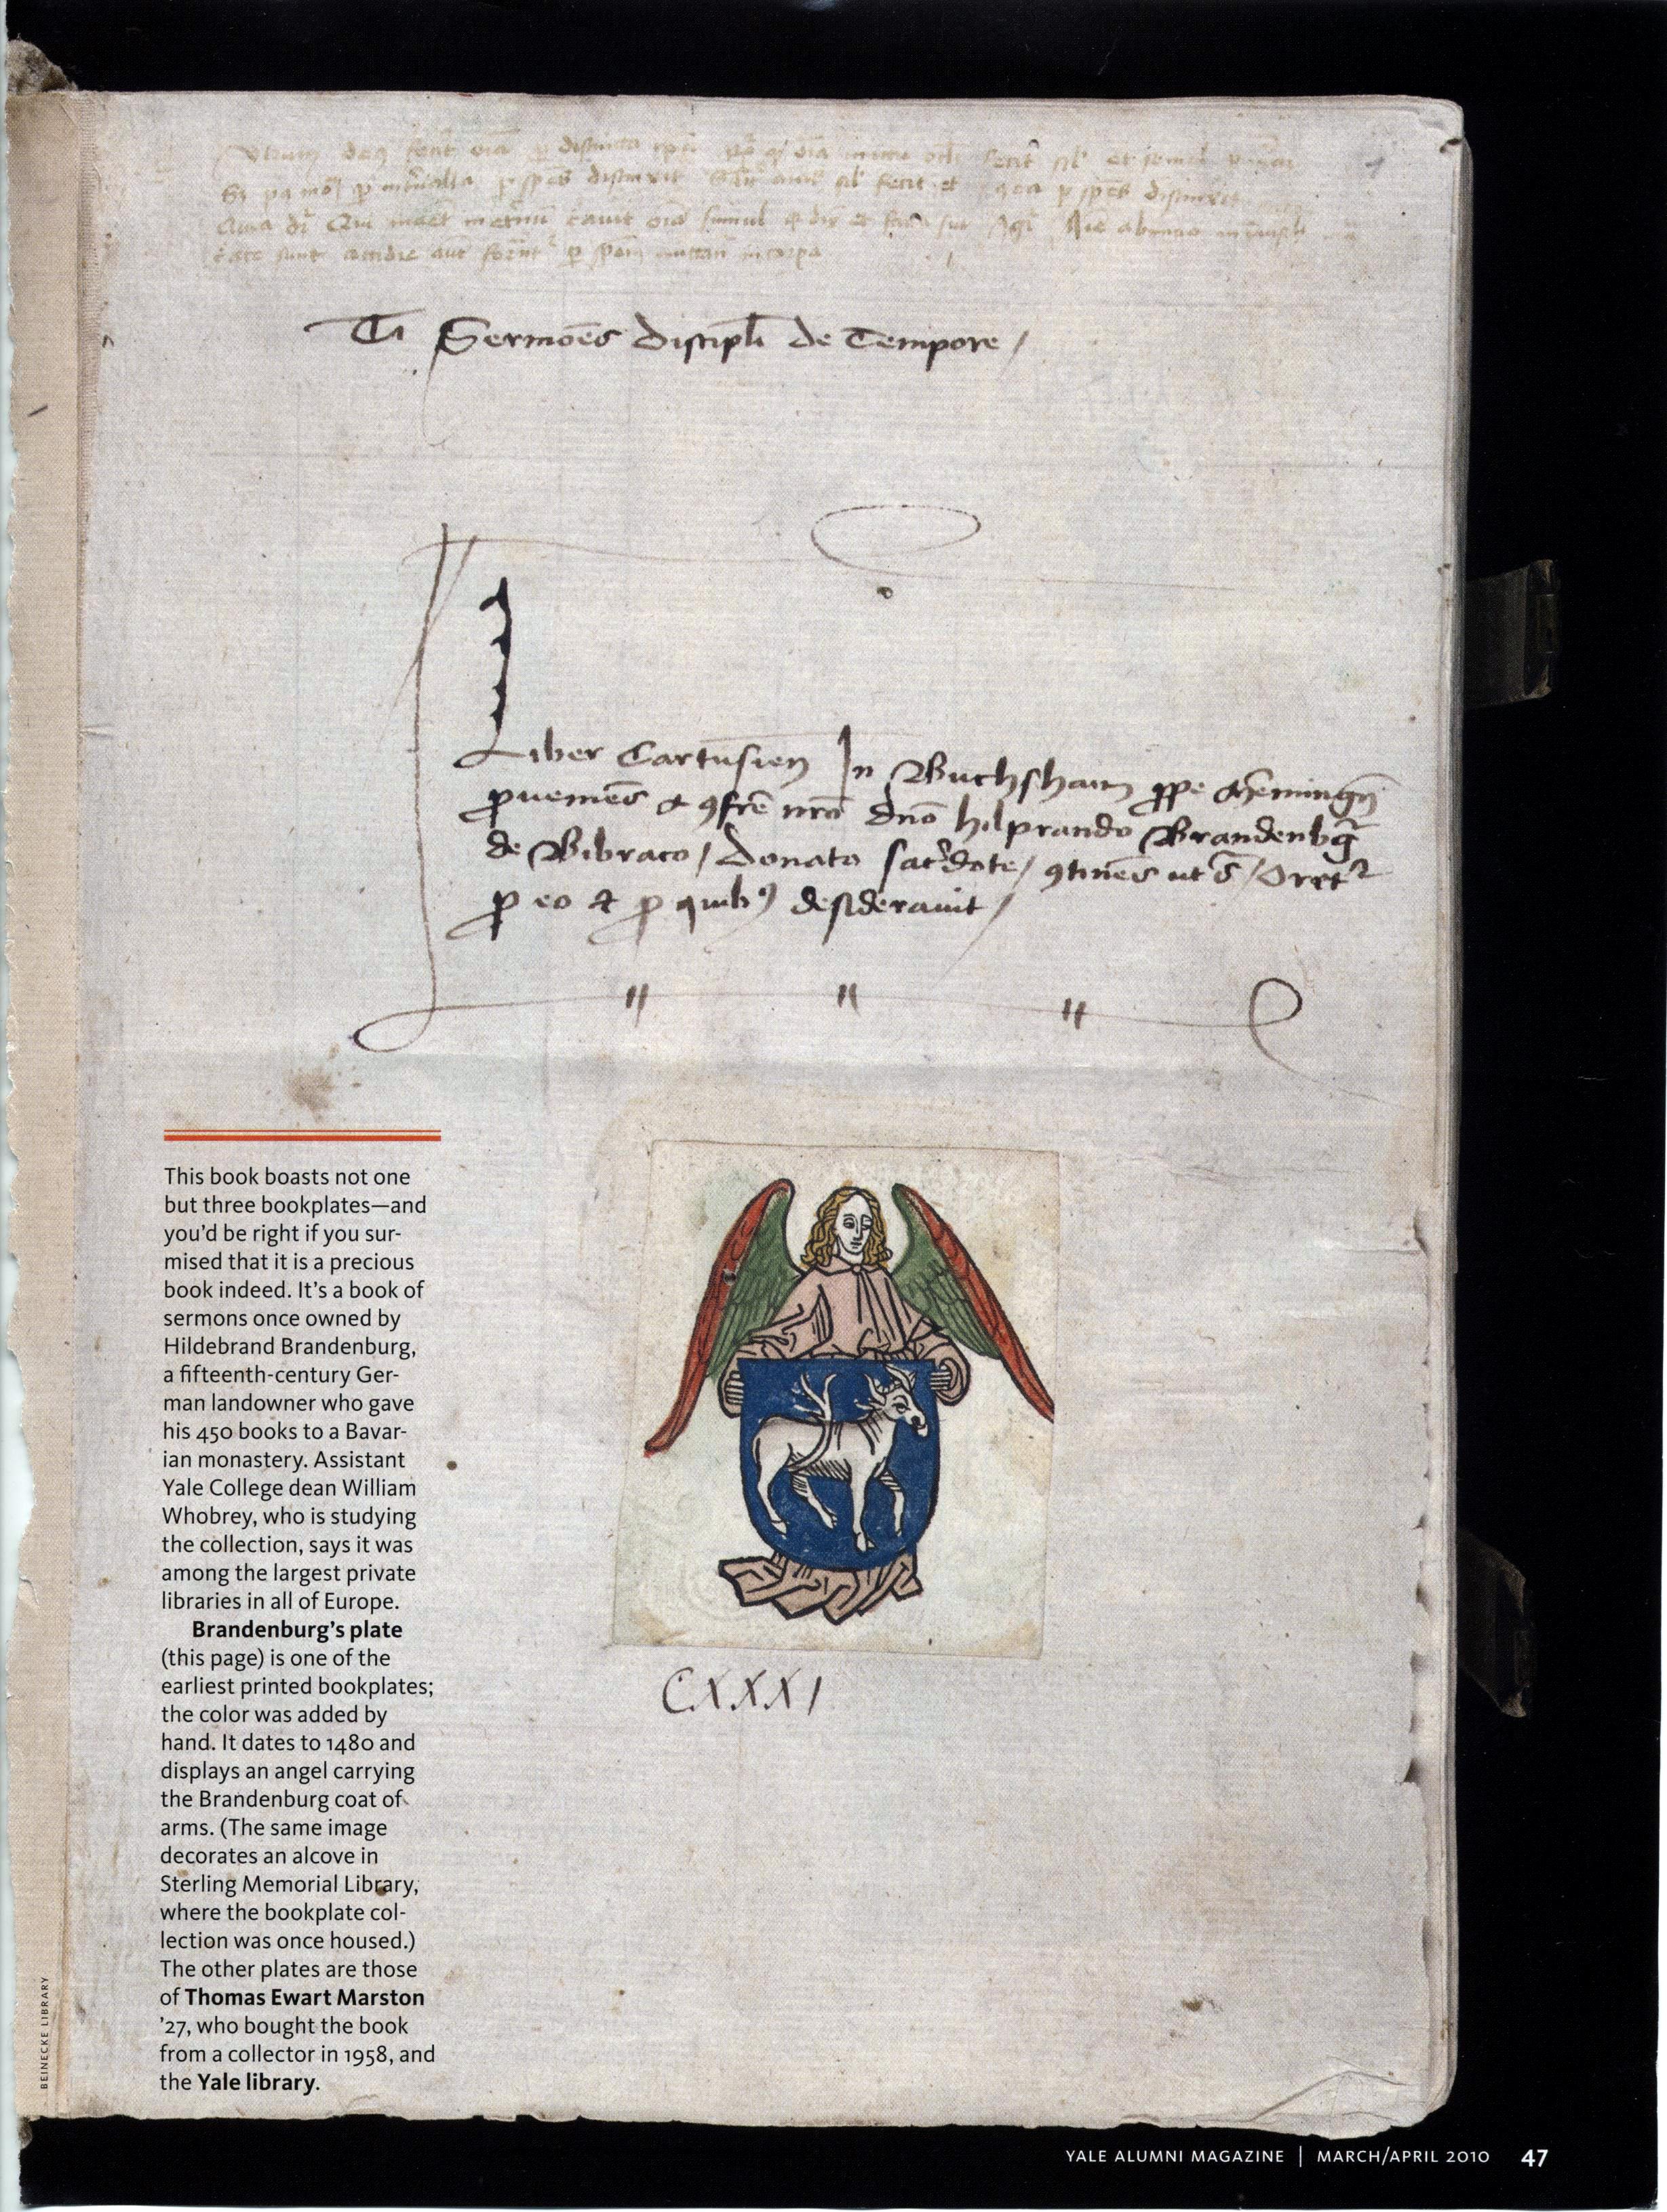 Sermoēs discipłi de Tempore /
Liber Cartusien̄ In Buchshaim ꝓpe Memingen̄
ꝓueniēs a ꝯfrē nrō dn̄o hilprando Brandenbḡ
de Bibraco / donato sac̉dote / ꝯtinēs ut s̄ / Oret᷑
ꝓ eo & ꝓ quibꝰ desiderauit /
This book boasts not one
but three bookplates—and
you’d be right if you sur-
mised that it is a precious
book indeed. It’s a book of
sermons once owned by
Hildebrand Brandenburg,
a fifteenth-century Ger-
man landowner who gave
his 450 books to a Bavar-
ian monastery. Assistant
Yale College dean William
Whobrey, who is studying
the collection, says it was
among the largest private
libraries in all of Europe.
Brandenburg’s plate
(this page) is one of the
earliest printed bookplates;
the color was added by
hand. It dates to 1480 and
displays an angel carrying
the Brandenburg coat of
arms. (The same image
decorates an alcove in
Sterling Memorial Library,
where the bookplate col-
lection was once housed.)
The other plates are those
of Thomas Ewart Marston
’27, who bought the book
from a collector in 1958, and
the Yale library.
CXXXI
BEINECKE LIBRARY
YALE ALUMNI MAGAZINE | MARCH/APRIL 2010 47